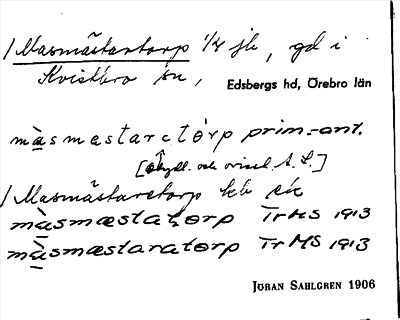 / Masmästartorp 1/4 jb, gd i
Kvistbro sn,
Edsbergs hd, Örebro län
màsmæstaretòrp prim.-ant.
[otydl. och oviss! A. L.]
/ Masmästaretorp
màsmæstatorp Tr MS 1913
màsmæstaratorp Tr MS 1913
JÖRAN SAHLGREN 1906